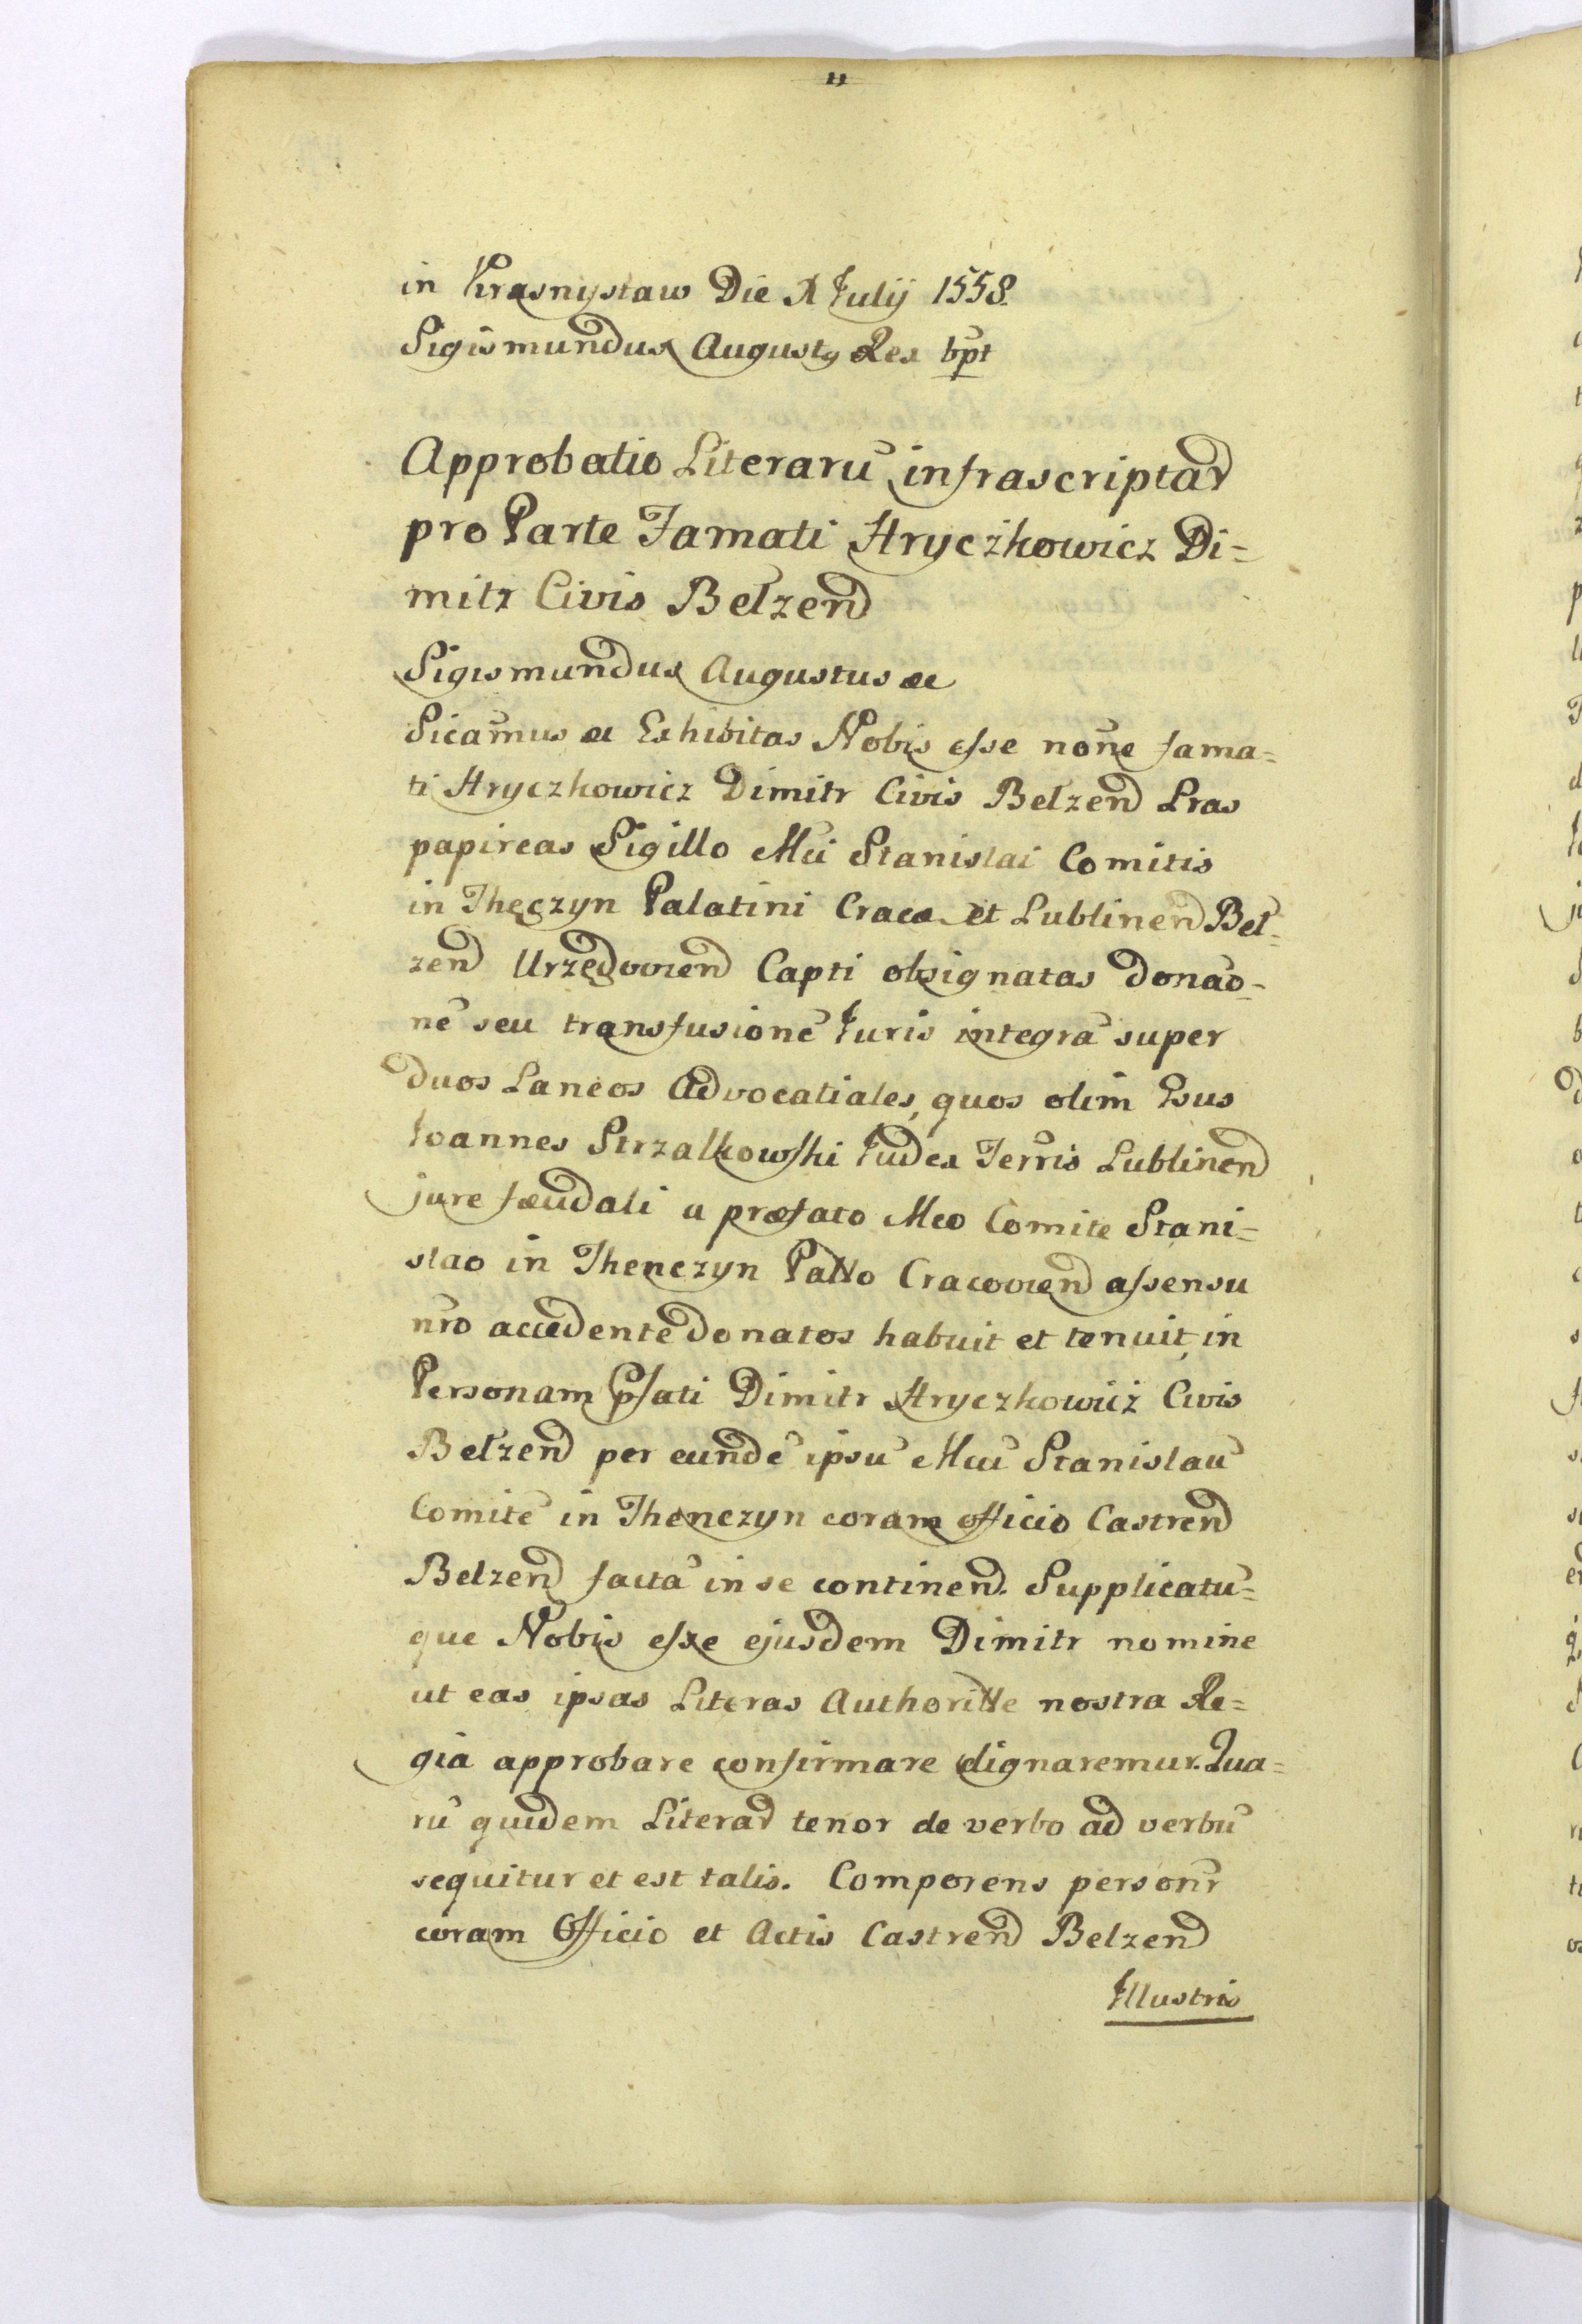 11
in Krasnystaw Die X Julij 1558.
Sigismundus Augustg Rex bpt
Approbatio Literarū infrascriptar̃
pro Parte Famati Hryczkowicz Di=
mitr Civis Bełzen̄
Sigismundus Augustus ae
Sicamus ae Exhibitas Nobis esse none fama=
ti Hryczkowicz Dimitr Civis Bełzen̄ Lras
papireas Sigillo Mci Stanislai Comitis
in Thęczyn Palatini Craco et Lublinen̄ Beł=
zen̄ Urzędowien̄ Capti obsignatas donao=
nē seu transfusionē Juris integrā super
duos Laneos Advocatiales, quos olim Gsus
Joannes Strzalkowski Judex Terris Lublinen̄
jure fæudali a præfato Mco Comite Stani=
slao in Thenczyn Palto Cracovien̄ assensu
nr̄o accedente donatos habuit et tenuit, in
Personam pfati Dimitr Hryczkowicz Civis
Bełzen̄ per eundē ipsū Mcū Stanislaū
Comitē in Thenczyn coram officio Castren̄
Bełzen̄ factā in se continen̄. Supplicatū=
que Nobis esse ejusdem Dimitr nomine
ut eas ipsas Literas Authoritte nostra Re=
gia approbare confirmare dignaremur. Qua=
rū quidem Literar̃ tenor de verbo ad verbū
sequitur et est talis. Comporens personr
coram Officio et Actis Castren̄ Bełzen̄
Illustris